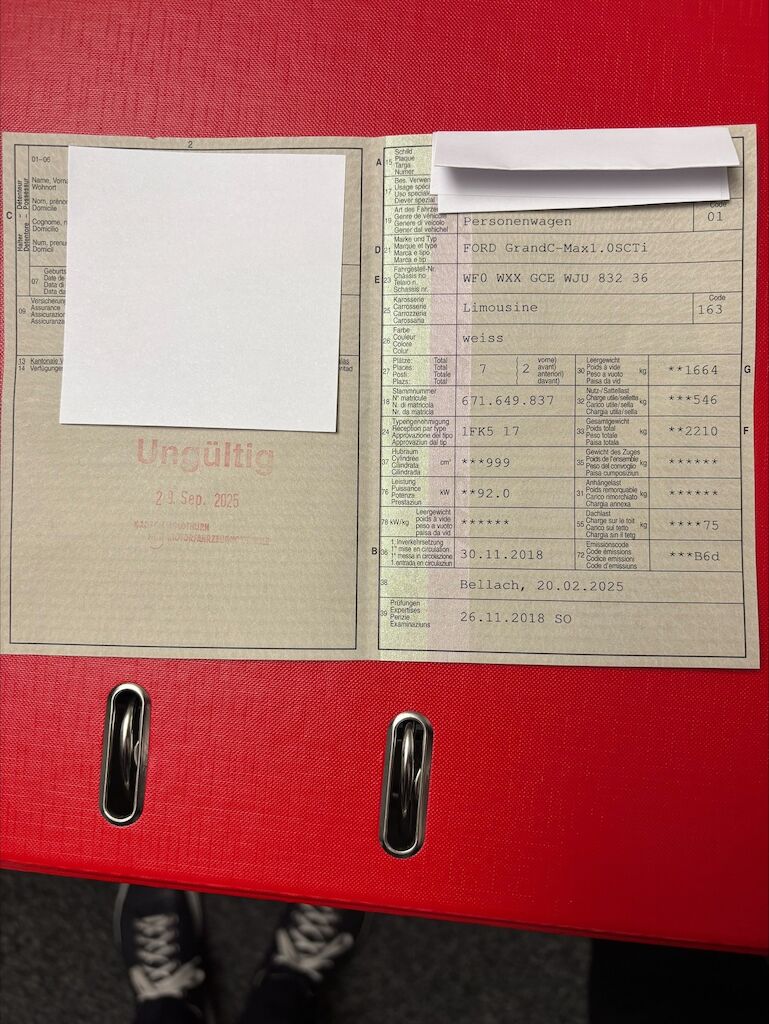 2
01–06
Name, Vorna
Wohnort
Nom, préno
Domicile
Cognome, n
Domicilio
Num, prenu
Domicil
C
Halter – Détenteur
Detentore – Possessur
07
Geburts
Date de
Data di
Data da
09
Versicherung
Assurance
Assicurazion
Assicuranza
13 Kantonale V
14 Verfügungen
Ungültig
29. Sep. 2025
A 15
Schild
Plaque
Targa
Numer
17
Bes. Verwen
Usage spéci
Uso special
Diever spezial
19
Art des Fahrze
Genre de véhicule
Genere di veicolo
Gener dal vichehel
Personenwagen
Code
01
D 21
Marke und Typ
Marque et type
Marca e tipo
Marca e tip
FORD GrandC-Max1.0SCTi
E 23
Fahrgestell-Nr.
Châssis no
Telaio n.
Schassis nr.
WF0 WXX GCE WJU 832 36
25
Karosserie
Carrosserie
Carrozzeria
Carossaria
Limousine
Code
163
26
Farbe
Couleur
Colore
Colur
weiss
27
Plätze: Total
Places: Total
Posti: Totale
Plazs: Total
7
2
vorne)
avant)
anteriori)
davant)
30
Leergewicht
Poids à vide
Peso a vuoto
Paisa da vid
kg
**1664
G
18
Stammnummer
N° matricule
N. di matricola
Nr. da matricla
671.649.837
32
Nutz-/Sattellast
Charge utile/sellette
Carico utile/sella
Chargia utila/sella
kg
***546
24
Typengenehmigung
Réception par type
Approvazione del tipo
Approvaziun dal tip
1FK5 17
33
Gesamtgewicht
Poids total
Peso totale
Paisa totala
kg
**2210
F
37
Hubraum
Cylindrée
Cilindrata
Cilindrada
cm³
***999
35
Gewicht des Zuges
Poids de l'ensemble
Peso del convoglio
Paisa cumposiziun
kg
******
76
Leistung
Puissance
Potenza
Prestaziun
kW
**92.0
31
Anhängelast
Poids remorquable
Carico rimorchiato
Chargia annexa
kg
******
78 kW/kg
Leergewicht
poids à vide
peso a vuoto
paisa da vid
******
55
Dachlast
Charge sur le toit
Carico sul tetto
Chargia sin il tetg
kg
****75
B 36
1. Inverkehrsetzung
1re mise en circulation
1a messa in circolazione
1. entrada en circulaziun
30.11.2018
72
Emissionscode
Code émissions
Codice emissioni
Code d'emissiuns
***B6d
38
Bellach, 20.02.2025
39
Prüfungen
Expertises
Perizie
Examinaziuns
26.11.2018 SO